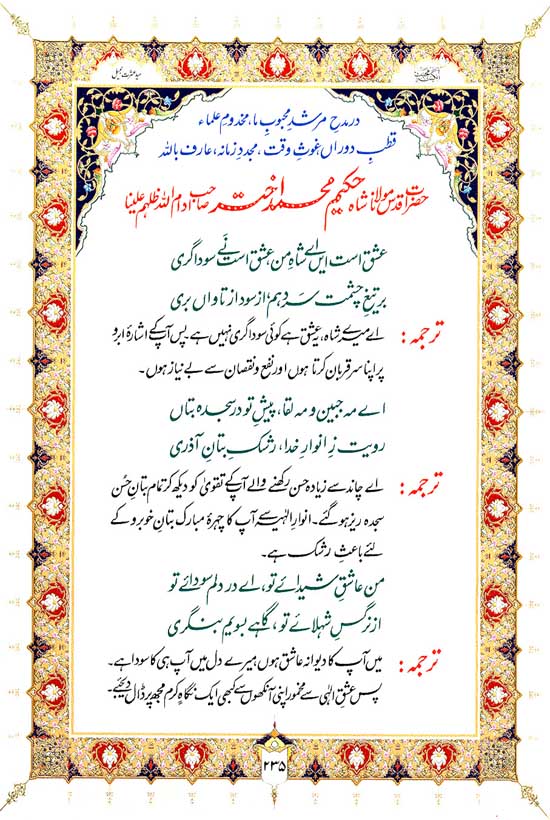 در مدح مرشدِ محبوبِ ما، مخدومِ علماء
قطبِ دوراں غوثِ وقت، مجددِ زمانہ، عارف باللہ
حضرتِ اقدس مولانا شاہ حکیم محمد اختر صاحب ادام اللہ ظلہم علینا
عشق است ایں اے شاہِ من، عشق است نَے سوداگری
بر تیغِ چشمت سر دہم از سود از تاواں بری
ترجمہ: اے میرے شاہ، یہ عشق ہے کوئی سوداگری نہیں ہے۔ پس آپ کے اشارۂ ابرو
پر اپنا سر قربان کرتا ہوں اور نفع و نقصان سے بے نیاز ہوں۔
اے مہ جبین و مہ لقا، پیشِ تو در سجدہ بتاں
رویت زِ انوارِ خدا، رشکِ بتانِ آذری
ترجمہ: اے چاند سے زیادہ حسن رکھنے والے آپ کے تقویٰ کو دیکھ کر تمام بتانِ حُسن
سجدہ ریز ہو گئے۔ انوارِ الٰہیہ سے آپ کا چہرۂ مبارک بتانِ خوبرو کے
لئے باعثِ رشک ہے۔
من عاشقِ شیدائے تو، اے در دلم سودائے تو
از نرگسِ شہلائے تو، گاہے بسویم بنگری
ترجمہ: میں آپ کا دیوانہ عاشق ہوں میرے دل میں آپ ہی کا سودا ہے۔
پس عشقِ الٰہی سے مخمور اپنی آنکھوں سے کبھی ایک نگاہِ کرم مجھ پر ڈال دیجیے۔
۲۳۵